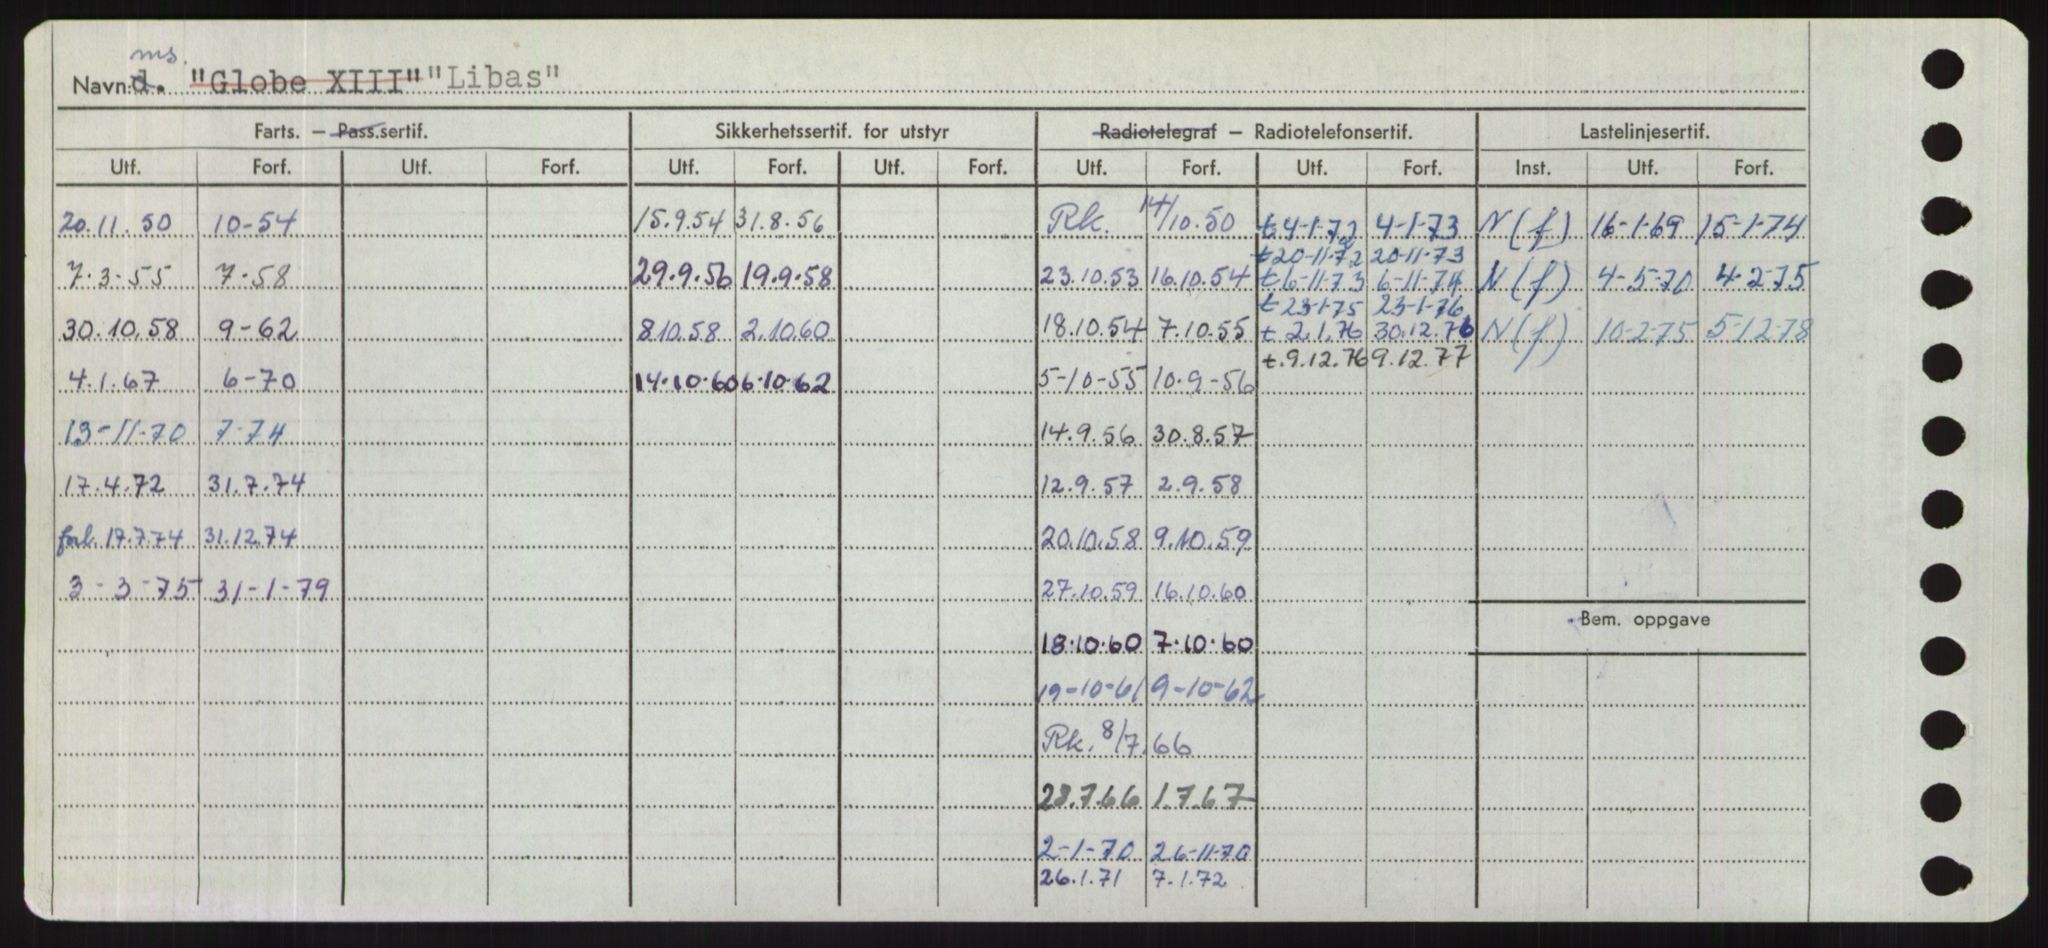 ms.
Navn: d. "Globe XIII" "Libas"
Farts. – Pass.sertif. Sikkerhetssertif. for utstyr Radiotelegraf – Radiotelefonsertif. Lastelinjesertif.
Utf. Forf. Utf. Forf. Utf. Forf. Utf. Forf. Utf. Forf. Utf. Forf. Inst. Utf. Forf.
20.11.50 10-54 15.9.54 31.8.56 Rk. 14/10.50 t 4-1-72 4-1-73 N(f) 16-1-69 15-1-74
t 20-11-72 20-11-73
7.3-55 7-58 29.9.56 19.9.58 23.10.53 16.10.54 t 6-11-73 6-11-74 N(f) 4-5-70 4-2-75
t 23-1-75 23-1-76
30.10.58 9-62 8.10.58 2.10.60 18.10.54 7.10.55 t 2.1.76 30.12.76 N(f) 10-2-75 5-12-78
t. 9.12.76 9.12.77
4.1.67 6-70 14.10.60 6.10.62 5-10-55 10.9-56
13-11-70 7-74 14.9.56 30.8.57
17.4.72 31.7.74 12.9.57 2.9.58
forl. 17.7.74 31.12.74 20.10.58 9.10.59
3-3-75 31-1-79 27.10.59 16.10.60
Bem. oppgave
18.10.60 7.10.60
19-10-61 9-10-62
Rk. 8/7.66
28.7.66 1.7.67
2-1-70 26-11-70
26.1.71 7.1.72